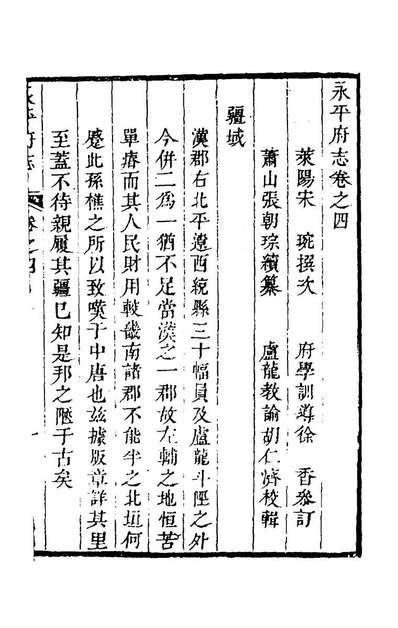 永平府志卷之四
萊陽宋　琬撰次　府學訓導徐　香參訂
蕭山張朝琮續纂　盧龍教諭胡仁濟校輯
疆域
漢郡右北平遼西統縣三十幅員及盧龍斗陘之外
今併二爲一猶不足當漢之一郡故左輔之地恒苦
單瘠而其人民財用較畿南諸郡不能半之北垣何
蹙此孫樵之所以致嘆于中唐也茲據版章詳其里
至蓋不待親履其疆已知是邦之陋于古矣
永平府志
卷之四
一